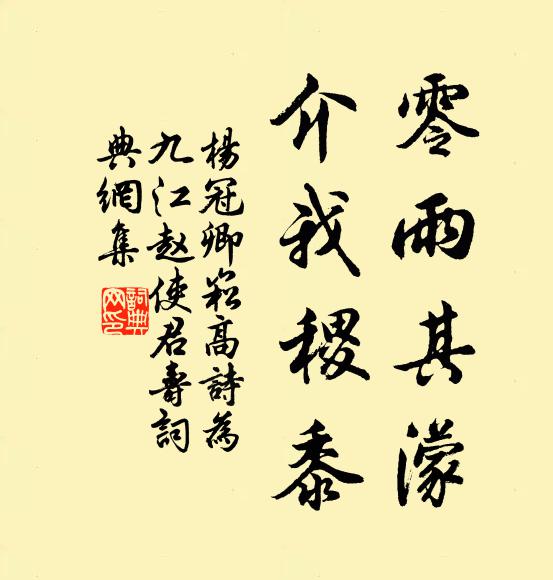 零雨其濛
介我稷黍
楊冠卿崧高詩為
九江赵使君壽詞
典網集
詞典
网印